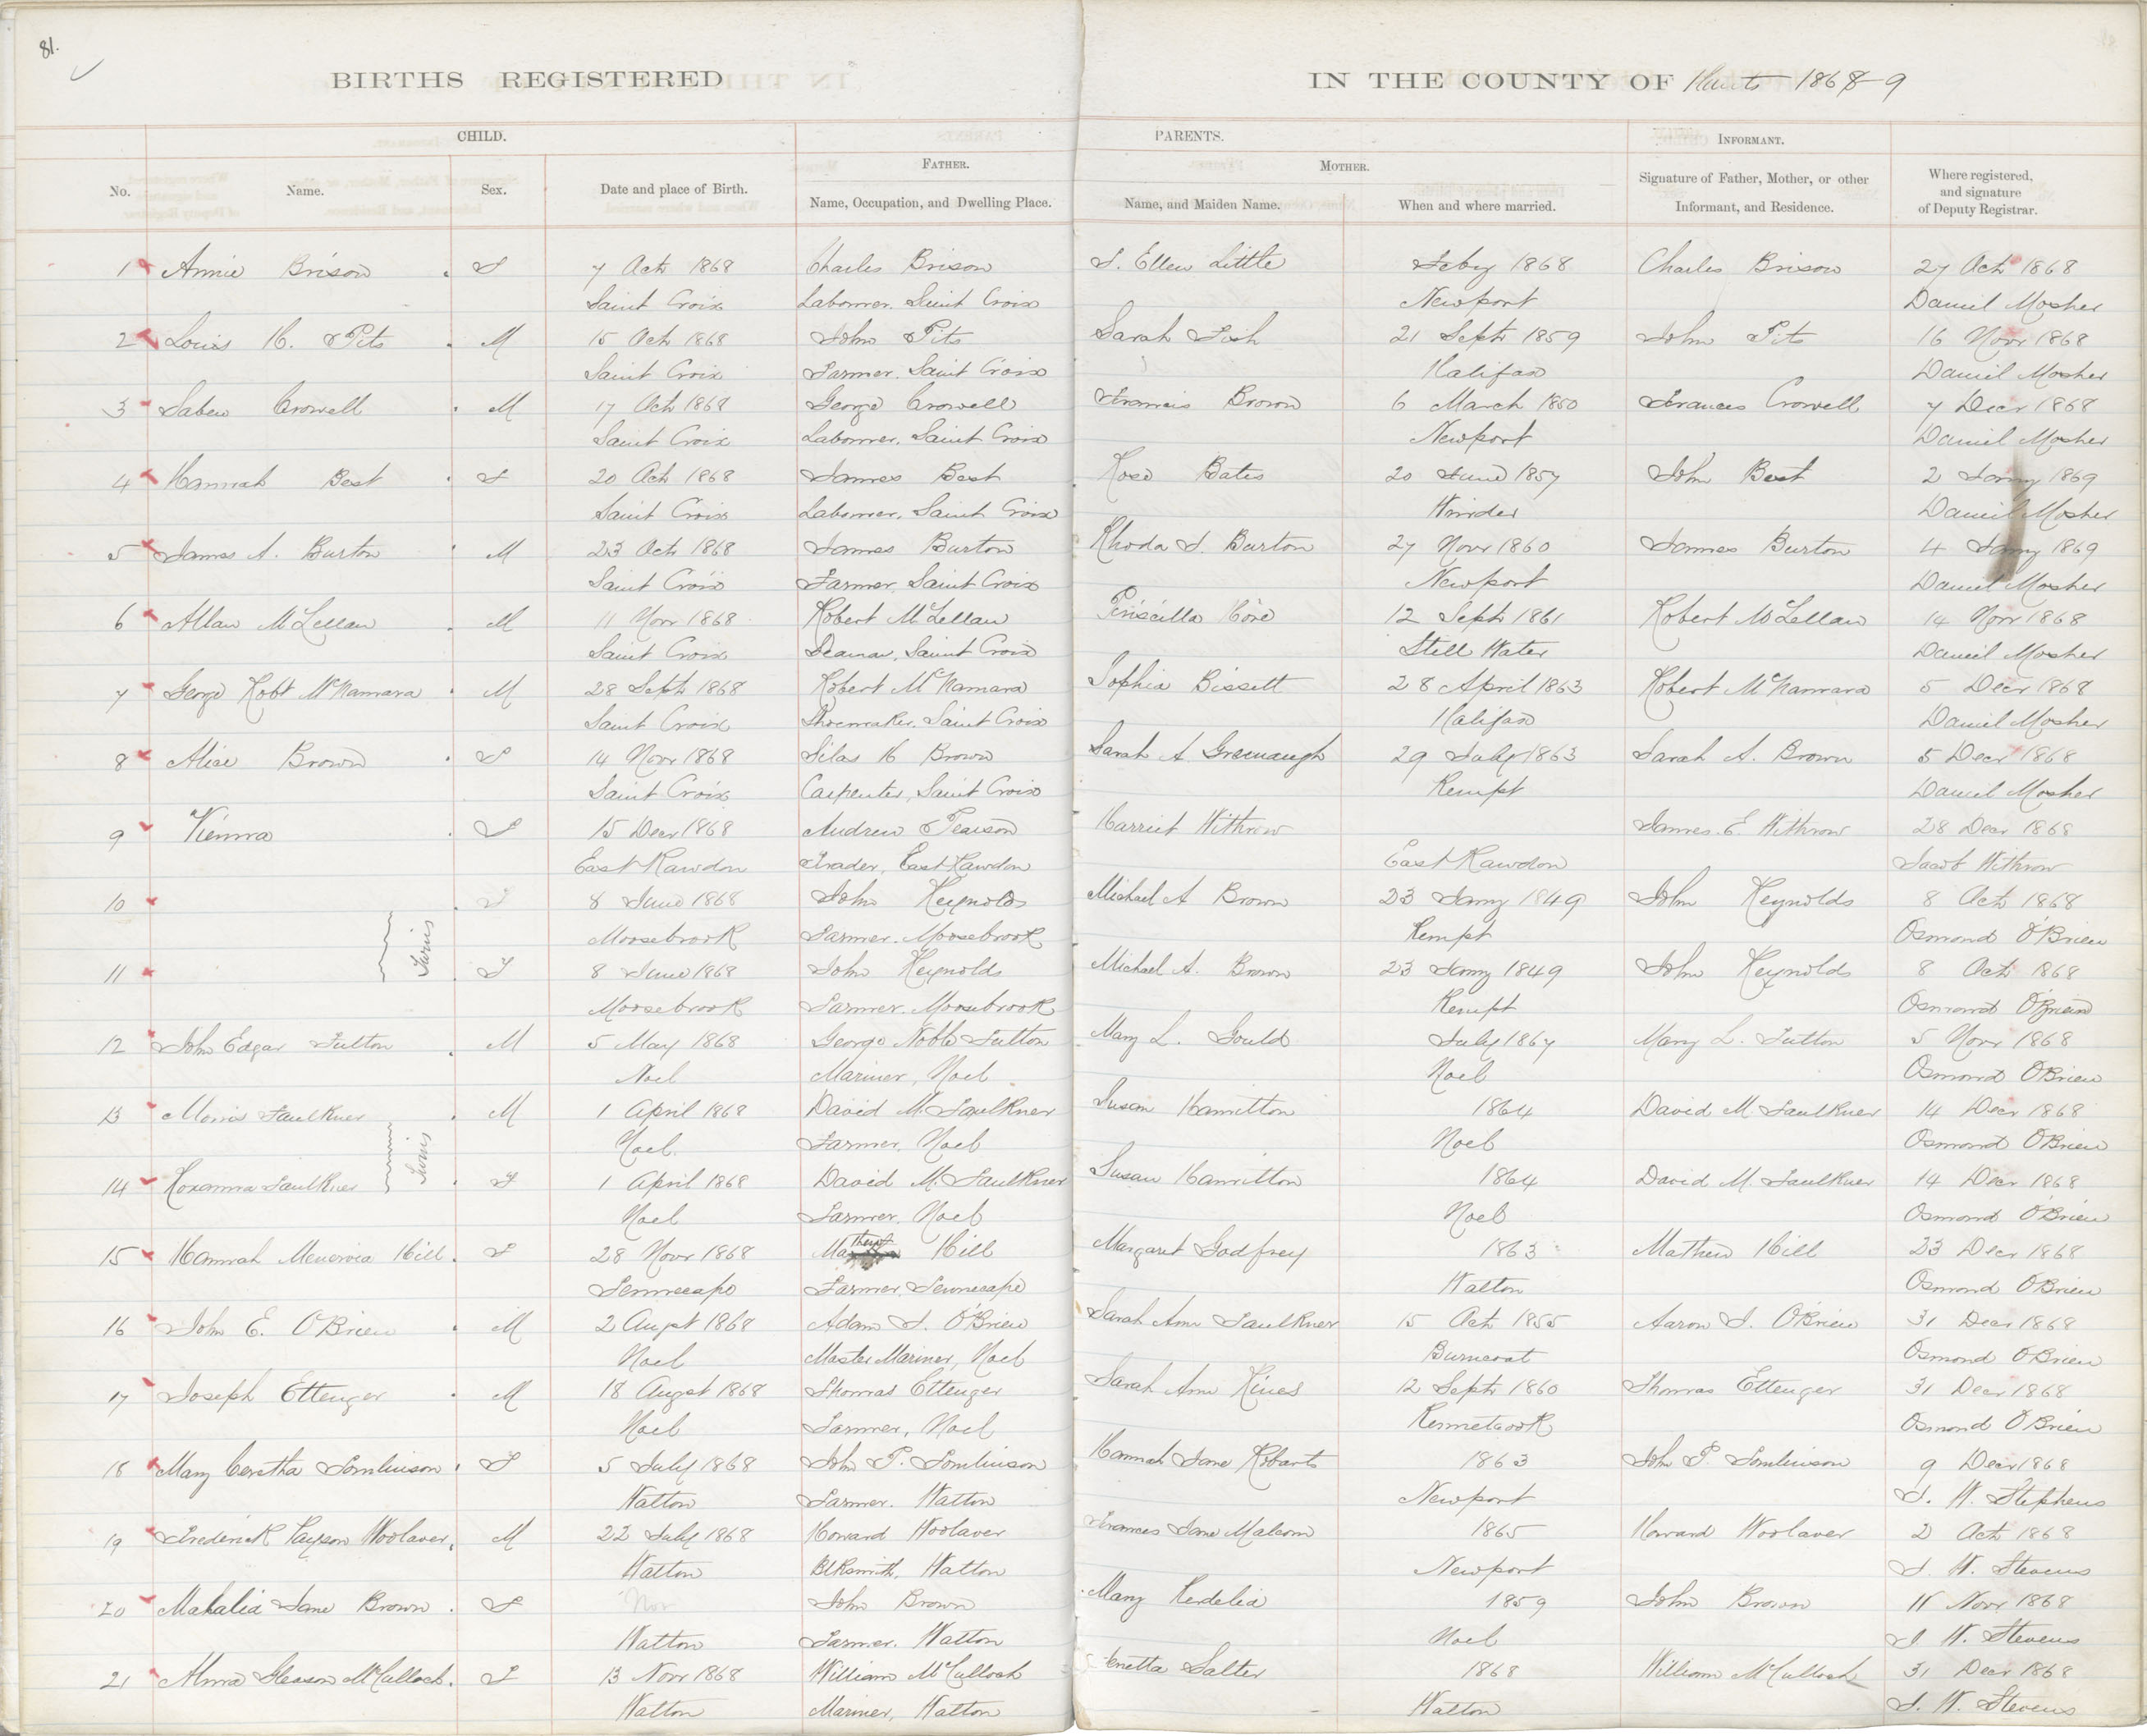 81.
BIRTHS REGISTERED IN THE COUNTY OF Hants 1868-9
CHILD. PARENTS. INFORMANT.
FATHER. MOTHER.
No. Name. Sex. Date and place of Birth. Name, Occupation, and Dwelling Place. Name, and Maiden Name. When and where married. Signature of Father, Mother, or other Informant, and Residence. Where registered, and signature of Deputy Registrar.
1 Annie Brison F 7 Oct 1868 Charles Brison S. Ellen Little Feby 1868 Charles Brison 27 Oct 1868
Saint Croix Labourer. Saint Croix Newport Daniel Mosher
2 Louis H. Pits M 15 Oct 1868 John Pits Sarah Fish 21 Sept 1859 John Pits 16 Novr 1868
Saint Croix Farmer. Saint Croix Halifax Daniel Mosher
3 Crowell M 17 Oct 1868 George Crowell Francis Brown 6 March 1850 Frances Crowell 7 Decr 1868
Saint Croix Labourer. Saint Croix Newport Daniel Mosher
4 Hannah Best F 20 Oct 1868 James Best Rose Bates 20 June 1857 John Best 2 Jany 1869
Saint Croix Labourer. Saint Croix Winder Daniel Mosher
5 James A. Burton M 23 Oct 1868 James Burton Rhoda J. Burton 27 Novr 1860 James Burton 4 Jany 1869
Saint Croix Farmer, Saint Croix Newport Daniel Mosher
6 Allan McLellan M 11 Novr 1868 Robert McLellan Priscilla 12 Sept 1861 Robert McLellan 14 Novr 1868
Saint Croix Seaman, Saint Croix Still Water Daniel Mosher
7 George Robt McNamara M 28 Sept 1868 Robert McNamara Sophia Bissett 28 April 1863 Robert McNamara 5 Decr 1868
Saint Croix Shoemaker. Saint Croix Halifax Daniel Mosher
8 Alice Brown F 14 Novr 1868 Silas H Brown Sarah A Greenaugh 29 July 1863 Sarah A. Brown 5 Decr 1868
Saint Croix Carpenter, Saint Croix Kempt Daniel Mosher
9 Vienna F 15 Decr 1868 Andrew Pearson Harriet Withrow James. E. Withrow 28 Decr 1868
East Rawdon Trader, East Rawdon East Rawdon Jacob Withrow
10 F 8 June 1868 John Reynolds Michael A Brown 23 Jany 1849 John Reynolds 8 Oct 1868
Twins Moosebrook Farmer. Moosebrook Kempt Osmond O'Brien
11 F 8 June 1868 John Reynolds Michael A. Brown 23 Jany 1849 John Reynolds 8 Oct 1868
Moosebrook Farmer. Moosebrook Kempt Osmond O'Brien
12 John Edgar Fulton M 5 May 1868 George Noble Fulton Mary L. Gould July 1867 Mary L. Fulton 5 Novr 1868
Noel Mariner, Noel Noel Osmond O'Brien
13 Morris Faulkner M 1 April 1868 David M. Faulkner Susan Hamilton 1864 David M. Faulkner 14 Decr 1868
Twins Noel. Farmer, Noel Noel Osmond O'Brien
14 Roxanna Faulkner F 1 April 1868 David M. Faulkner Susan Hamilton 1864 David M. Faulkner 14 Decr 1868
Noel Farmer, Noel Noel Osmond O'Brien
15 Hannah Menervia Hill. F 28 Novr 1868 Mathew Hill Margaret Godfrey 1863 Mathew Hill 23 Decr 1868
Tennecape Farmer, Tennecape Walton Osmond O'Brien
16 John E. O'Brien M 2 Augst 1868 Adam J. O'Brien Sarah Ann Faulkner 15 Oct 1855 Aaron J. O'Brien 31 Decr 1868
Noel Master Mariner, Noel Burncoat Osmond O'Brien
17 Joseph Ettenger M 18 Augst 1868 Thomas Ettenger Sarah Ann Hines 12 Sept 1860 Thomas Ettenger 31 Decr 1868
Noel Farmer, Noel Kennetcook Osmond O'Brien
18 Mary Tomlinson F 5 July 1868 John P. Tomlinson Hannah Jane Robarts 1863 John P. Tomlinson 9 Decr 1868
Walton Farmer. Walton Newport J. W. Stephens
19 Frederick Payson Woolaver. M 22 July 1868 Howard Woolaver Frances Jane Malcom 1865 Howard Woolaver 2 Oct 1868
Walton Blksmith, Walton Newport J. W. Stevens
20 Mahalia Jane Brown. F Nov John Brown Mary Kerdelia 1859 John Brown 11 Novr 1868
Walton Farmer. Walton Noel J W. Stevens
21 Alma Gleason McCulloch. F 13 Novr 1868 William McCulloch Salter 1868 William McCulloch 31 Decr 1868
Walton Mariner, Walton Walton J. W. Stevens